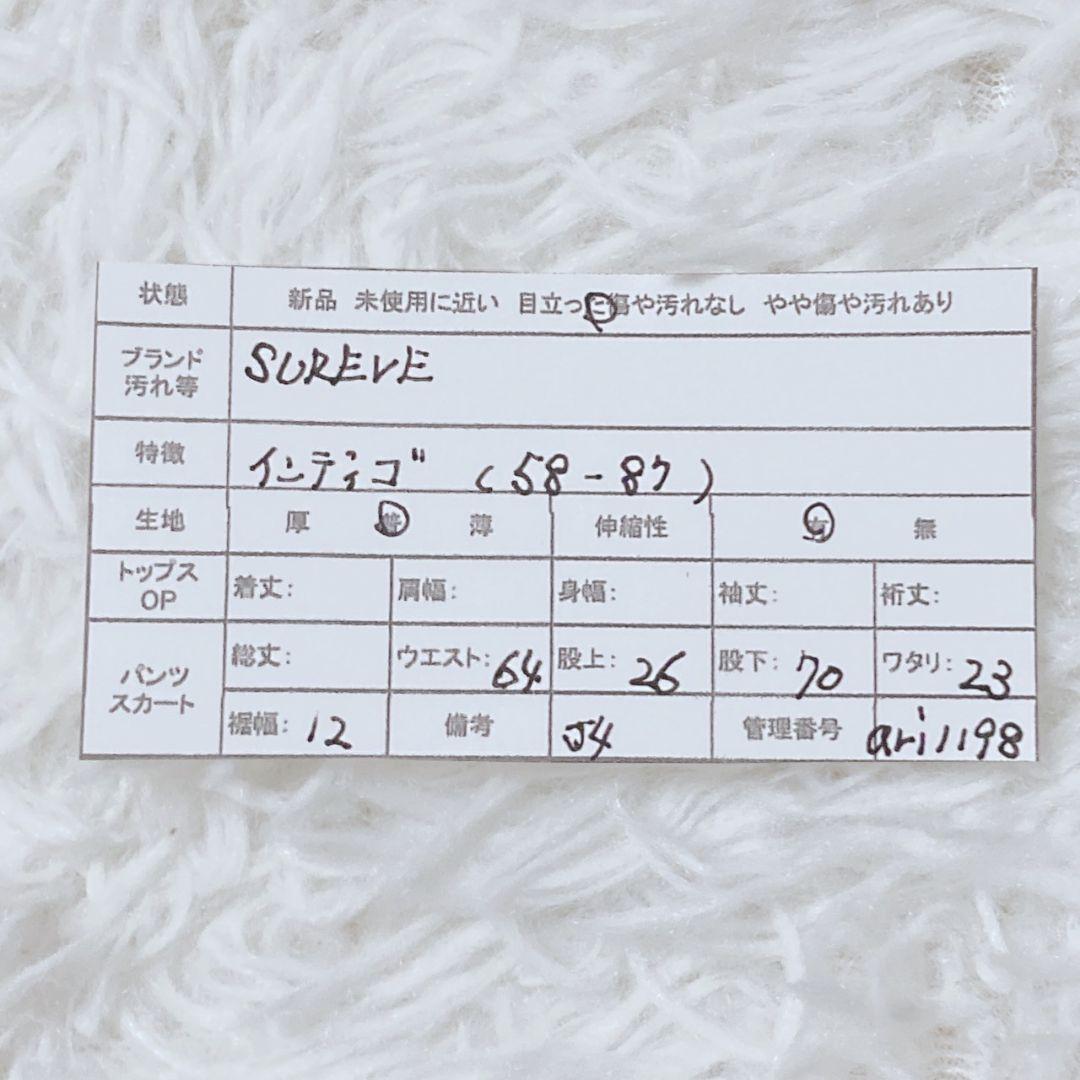 状態 新品 未使用に近い 目立った傷や汚れなし やや傷や汚れあり
ブランド
汚れ等 SUREVE
特徴 インディゴ (58-87)
生地 厚 普 薄 伸縮性 有 無
トップス
OP 着丈: 肩幅: 身幅: 袖丈: 裄丈:
パンツ
スカート 総丈: ウエスト: 64 股上: 26 股下: 70 ワタリ: 23
裾幅: 12 備考 J4 管理番号 ari1198